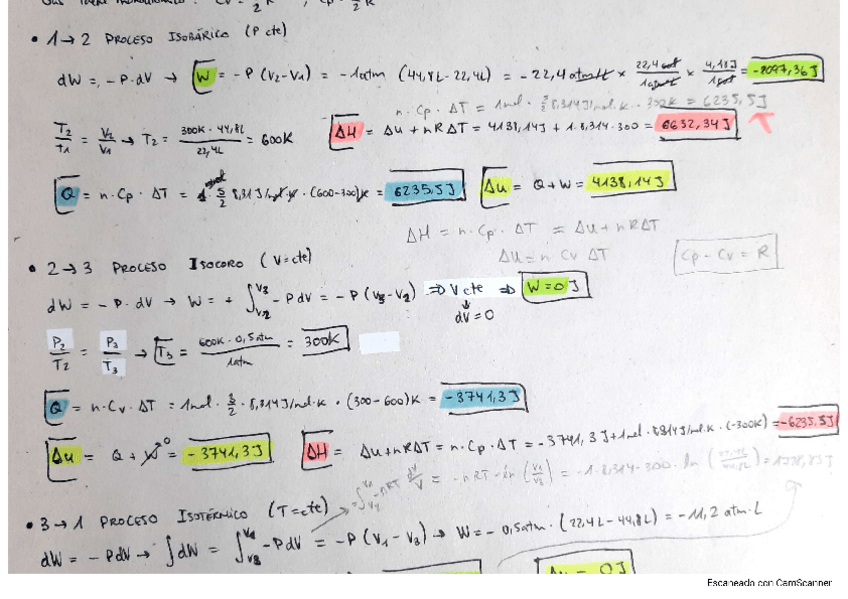 Gas ideal monoatómico: Cv = 3/2 R ; Cp = 5/2 R
• 1→2 PROCESO ISOBÁRICO (P cte)
dW = - P·dV → W = - P (V₂-V₁) = -1atm (44,8L - 22,4L) = - 22,4 atm·L × × 4,18J/1cal = -2097,36J
n · Cp · ΔT = 1mol · 5/2 8,314J/mol·K · 300K = 6235,5J
T₂/T₁ = V₂/V₁ → T₂ = 300K · 44,8L / 22,4L = 600K ΔH = Δu + nRΔT = 4138,14J + 1·8,314·300 = 6632,34J
Q = n·Cp·ΔT = 1mol 5/2 8,31J/mol·K · (600-300)K = 6235,5J Δu = Q+W = 4138,14J
ΔH = n·Cp·ΔT = Δu + nRΔT
Δu = n Cv ΔT Cp - Cv = R
• 2→3 PROCESO ISOCORO (V=cte)
dW = - P·dV → W = + ∫ᵥ₂ⱽ³ - PdV = - P (V₃-V₂) ⇒ V cte ⇒ W=0J
↓
dV = 0
P₂/T₂ = P₃/T₃ → T₃ = 600K · 0,5atm / 1atm = 300K
Q = n·Cv·ΔT = 1mol · 3/2 · 8,314J/mol·K · (300-600)K = -3741,3J
Δu = Q + W⁰ = -3741,3J ΔH = Δu+nRΔT = n·Cp·ΔT = -3741,3J+1mol·8,314J/mol·K·(-300K) = -6235,5J
= ∫ -nRT dV/V = -nRT·ln (V₁/V₃) = -1·8,314·300·ln (22,4L/44,8L) =
• 3→1 PROCESO ISOTÉRMICO (T=cte)
dW = - PdV → ∫dW = ∫ᵥ₃ⱽ¹ -PdV = -P (V₁-V₃) → W = - 0,5atm · (22,4L - 44,8L) = -11,2 atm·L
Δu = 0J
Escaneado con CamScanner